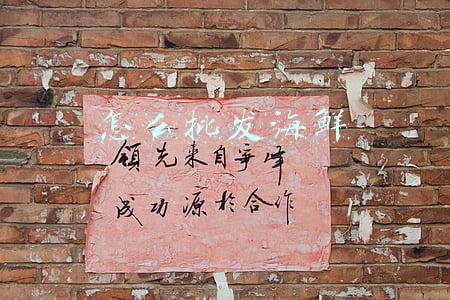 怎么批发海鲜
领先来自争峰
成功源於合作